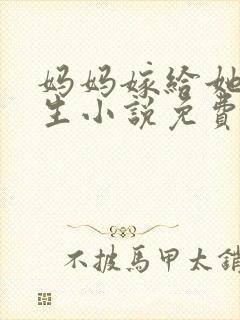 妈妈嫁给她
生小説免費
不披馬甲太銷